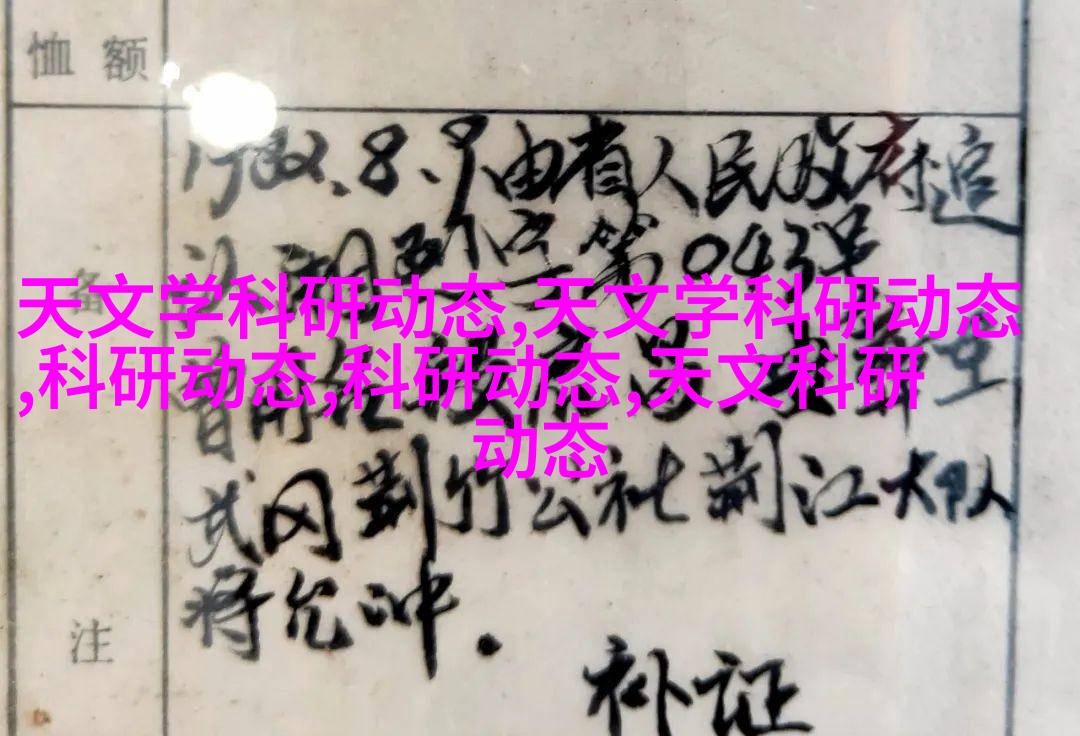 恤额
1982.8.9由省人民政府追
认,湘烈字第043号
天文学科研动态,天文学科研动态
,科研动态,科研动态,天文科研
动态
备
武冈荆竹公社荆江大队
将允冲.
注
补证